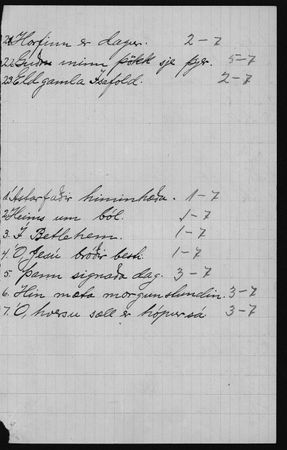 21. Horfinn er dagur. 2-7
22. Guði mínum þökk sje þjer. 5-7
23. Eldgamla Ísafold. 2-7
1. Ástarfaðir himinhæða. 1-7
2. Heims um ból. 1-7
3. Í Betlehem. 1-7
4. Ó, Jesú bróðir besti. 1-7
5. Þann signaða dag. 3-7
6. Hin mæta morgunstundin. 3-7
7. Ó, hversu sæll er hópur sá 3-7